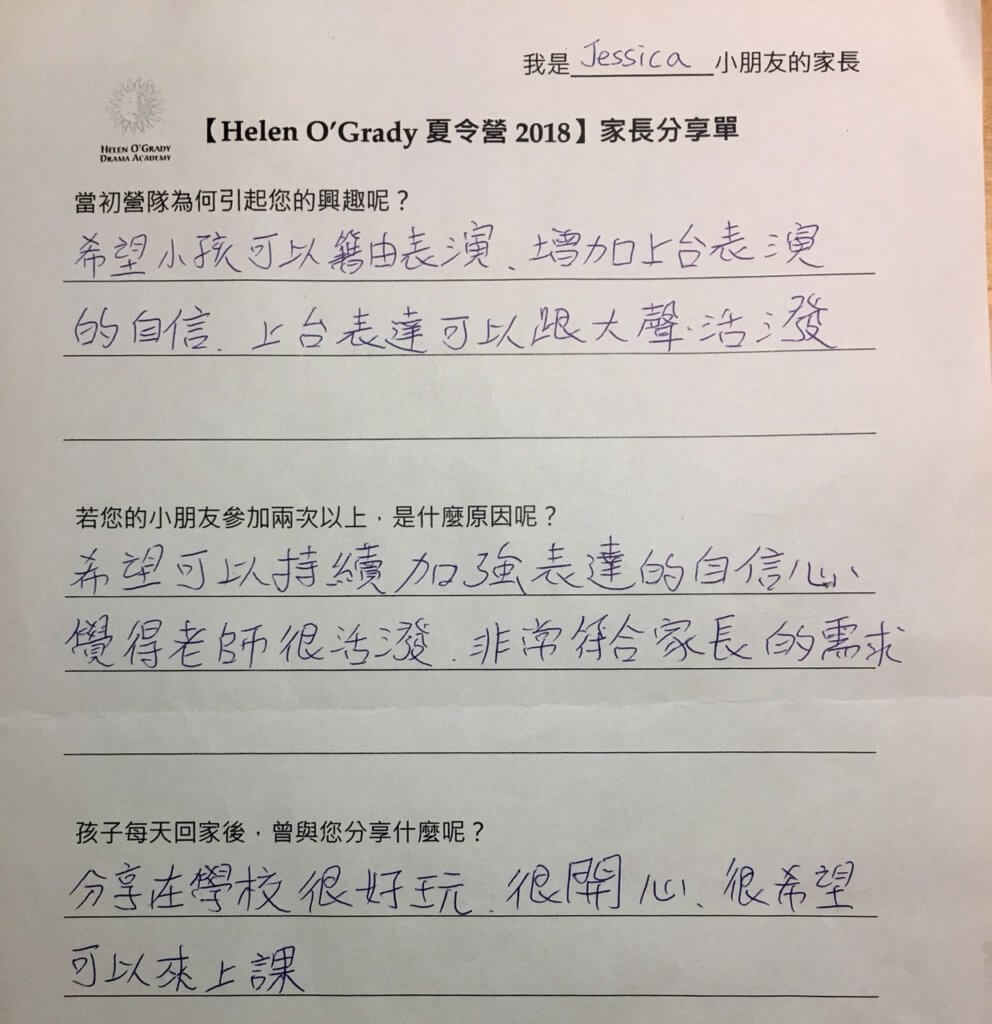 我是 Jessica 小朋友的家長
HELEN O'GRADY
DRAMA ACADEMY
【Helen O'Grady 夏令營 2018】家長分享單
當初營隊為何引起您的興趣呢？
希望小孩可以籍由表演、增加上台表演
的自信、上台表達可以跟大聲、活潑
若您的小朋友參加兩次以上，是什麼原因呢？
希望可以持續加強表達的自信心、
覺得老師很活潑、非常符合家長的需求
孩子每天回家後，曾與您分享什麼呢？
分享在學校很好玩、很開心、很希望
可以來上課